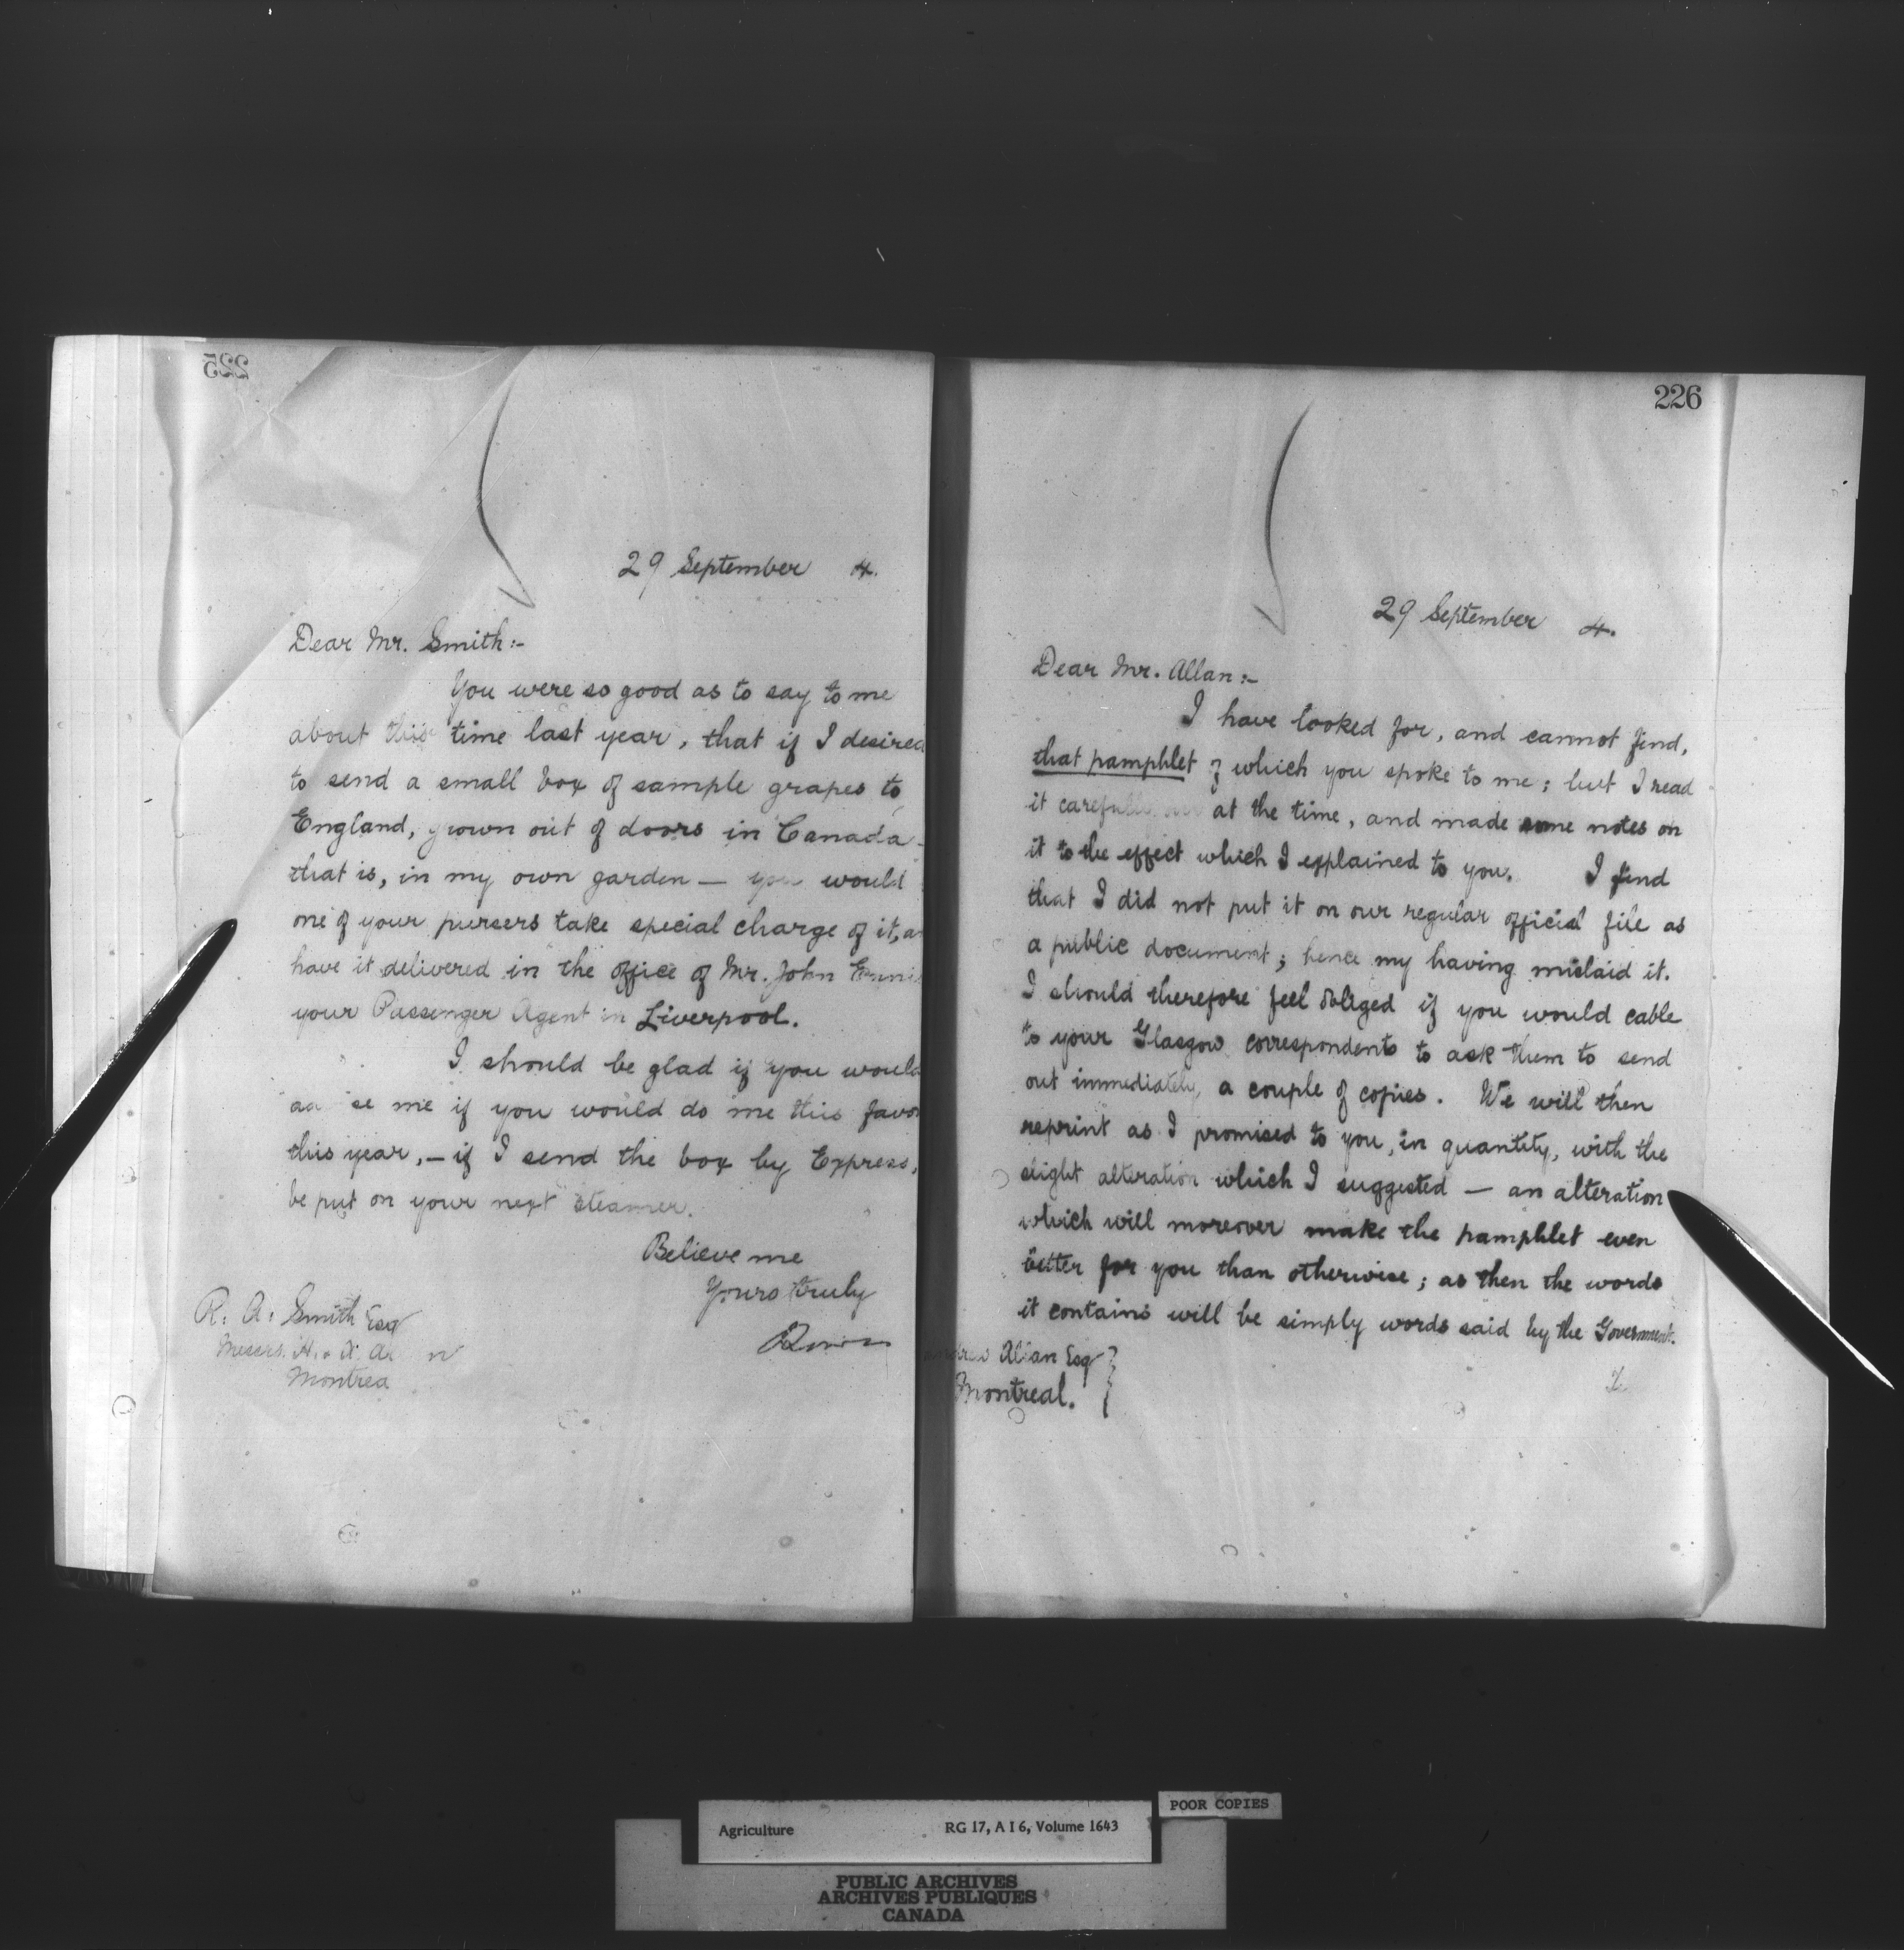 225
29 September 4.
Dear Mr. Smith:-
You were so good as to say to me
about this time last year, that if I desired
to send a small box of sample grapes to
England, grown out of doors in Canada -
that is, in my own garden — you would
one of your pursers take special charge of it, a
have it delivered in the office of Mr. John Enni
your Passenger Agent in Liverpool.
I should be glad if you would
me if you would do me this favor
this year, — if I send the box by Express,
be put on your next steamer.
Believe me
Yours truly
R. A. Smith Esq
Messrs. H. & A.
Montrea
226
29 September 4.
Dear Mr. Allan:-
I have looked for, and cannot find,
that pamphlet of which you spoke to me; but I read
it carefully over at the time, and made some notes on
it to the effect which I explained to you. I find
that I did not put it on our regular official file as
a public document; hence my having mislaid it.
I should therefore feel obliged if you would cable
to your Glasgow correspondents to ask them to send
out immediately, a couple of copies. We will then
reprint as I promised to you, in quantity, with the
slight alteration which I suggested — an alteration
which will moreover make the pamphlet even
better for you than otherwise; as then the words
it contains will be simply words said by the Government.
Andrew Allan Esq
Montreal.
POOR COPIES
Agriculture RG 17, A I 6, Volume 1643
PUBLIC ARCHIVES
ARCHIVES PUBLIQUES
CANADA